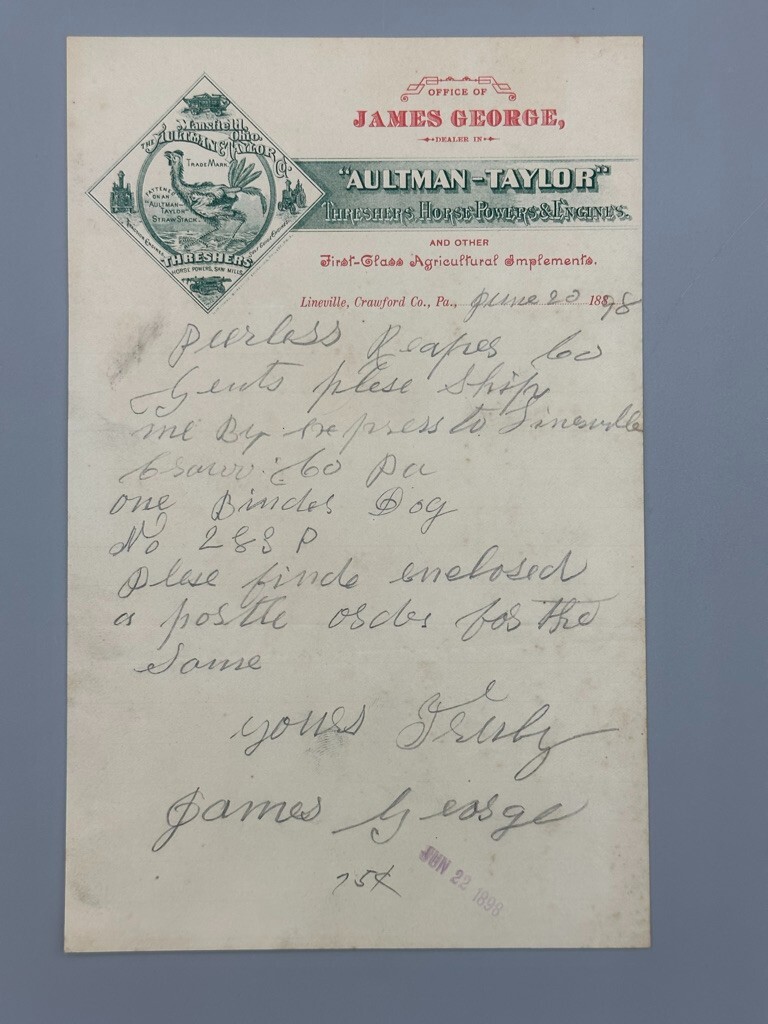 OFFICE OF
JAMES GEORGE,
DEALER IN
"AULTMAN-TAYLOR"
THRESHERS, HORSE POWERS & ENGINES.
AND OTHER
First-Class Agricultural Implements.
Mansfield, Ohio.
THE AULTMAN & TAYLOR CO.
TRADE MARK.
FATTENED
ON AN
"AULTMAN-
TAYLOR"
STRAW STACK.
THRESHERS
HORSE POWERS, SAW MILLS,
Lineville, Crawford Co., Pa., June 20 1898
Peerless Reaper Co
Gents plese Ship
me By express to Linesville
Craw. Co Pa
one Binder Dog
No
Plese finde enclosed
a postle order for the
Same
yours
James George
75¢
JUN 22 1898